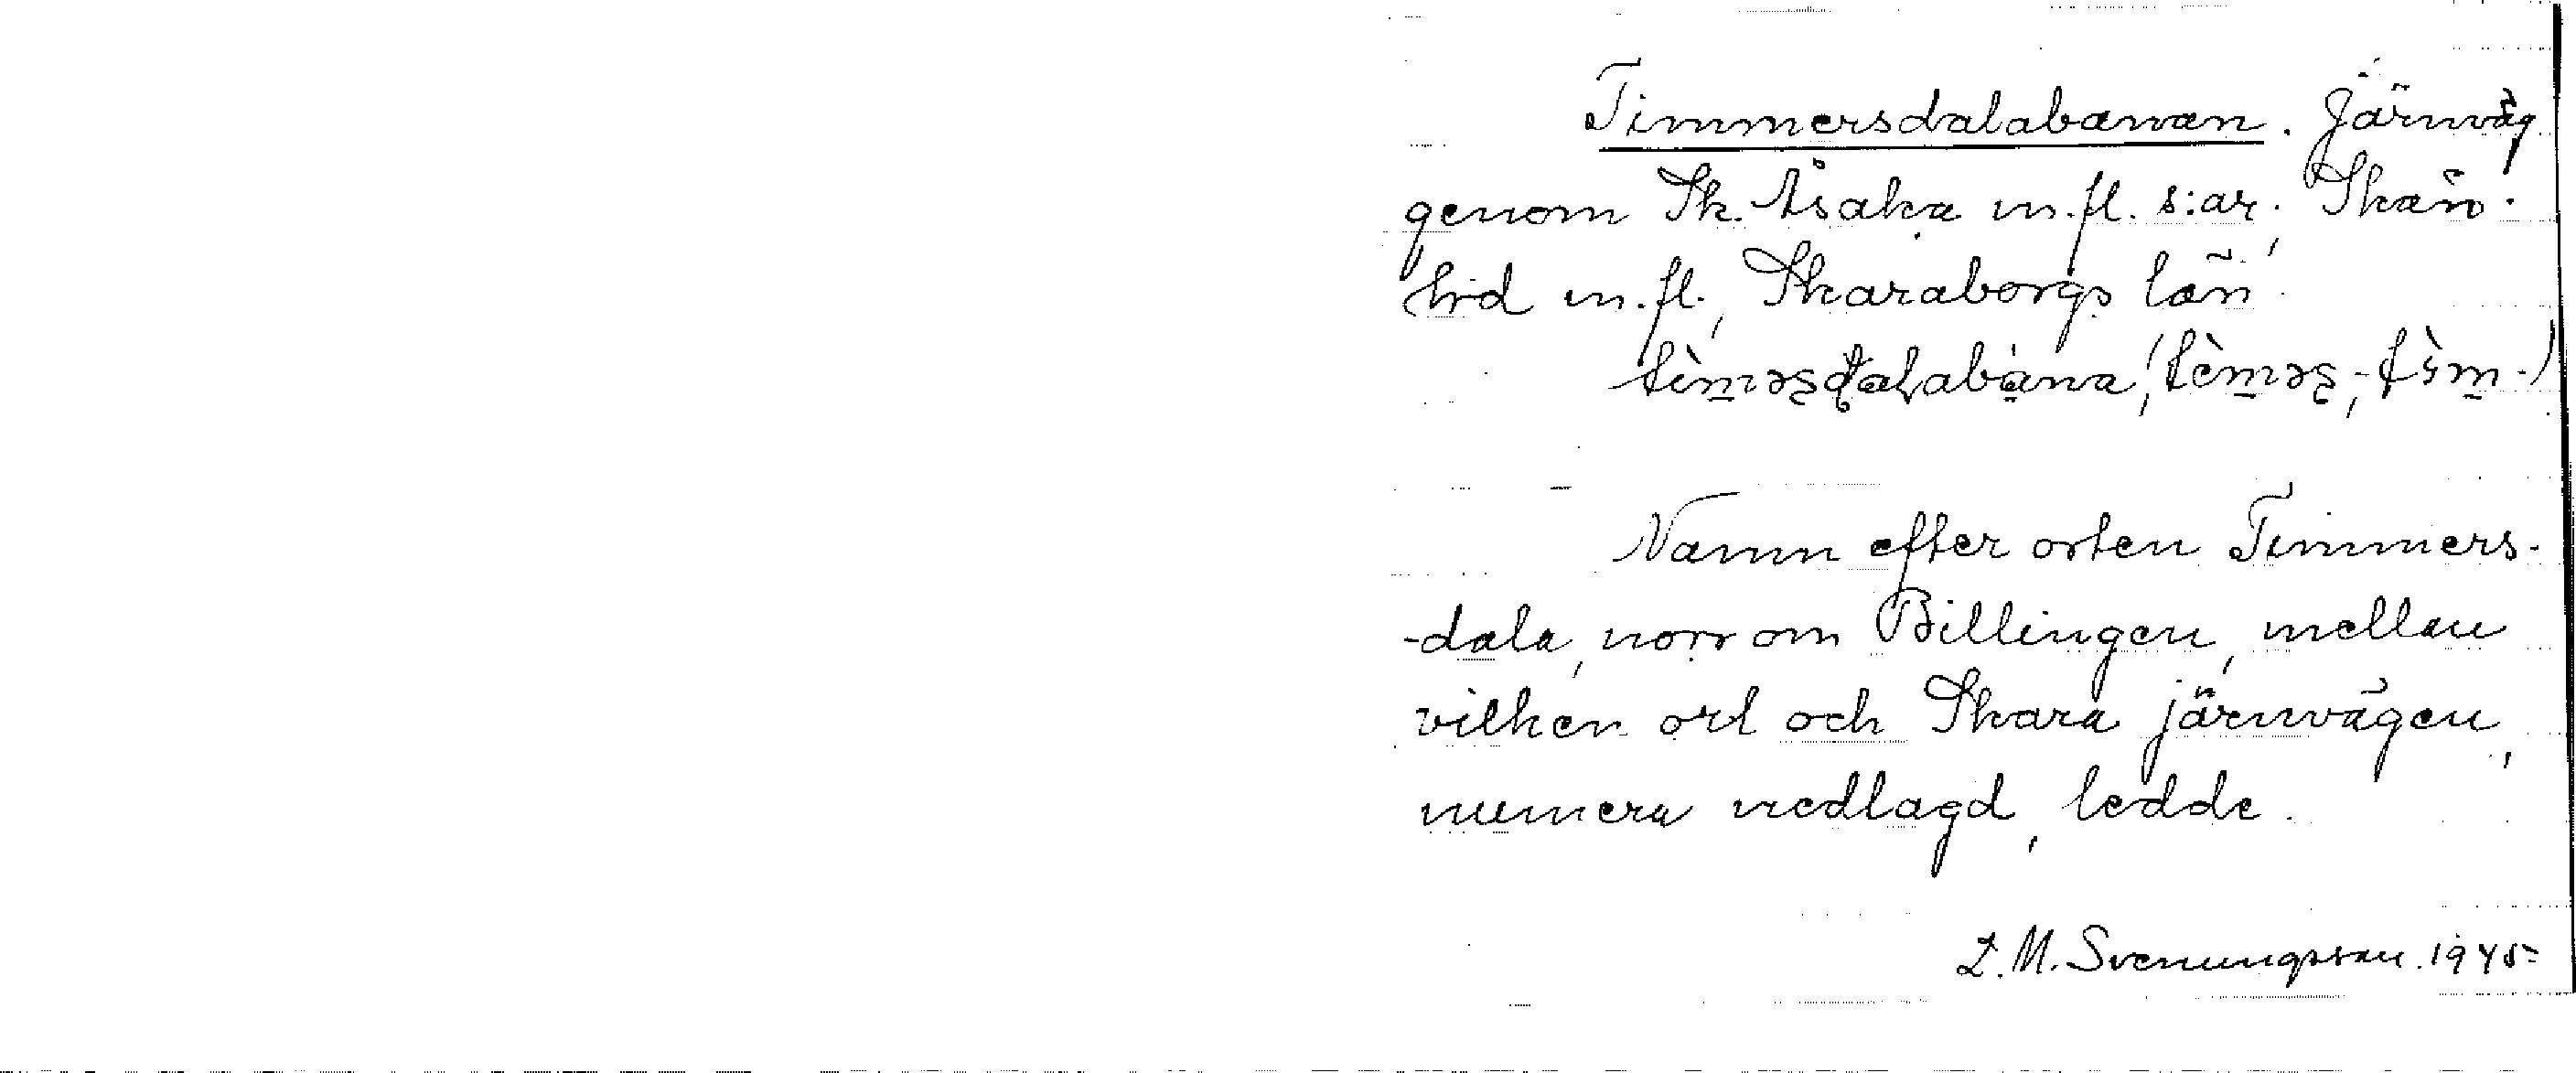 Timmersdalabanan. Järnväg
genom Sk. Åsaka m.fl. s:ar, Skån.
hd m.fl., Skaraborgs län.
Namn efter orten Timmers-
-dala, norr om Billingen, mellan
vilken ort och Skara järnvägen,
numera nedlagd, ledde.
L. M. Svenungsson. 1945